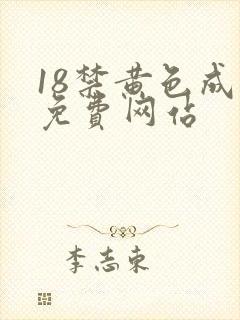 18禁黄色成
免费网佔
李志东